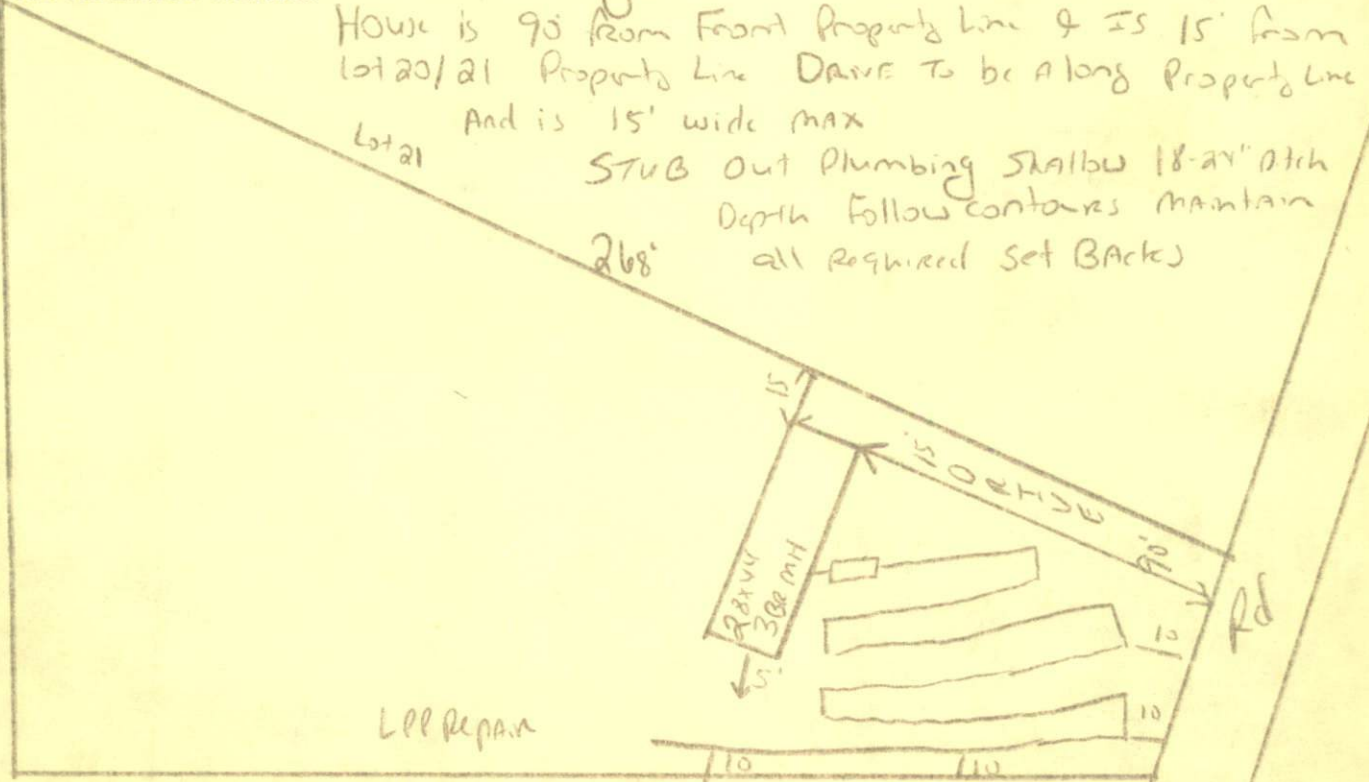 House is 90' from Front Property Line & IS 15' from
lot 20/21 Property Line DRIVE To be Along Property Line
And is 15' wide MAX
STUB Out Plumbing SHAllow 18-24" Ditch
Depth Follow contours MAintain
all Required Set BAcks
Lot 21
268'
15
15' DRIVE
90'
Rd
28x44
3BR MH
5'
10
10
LPP Repair
10
10